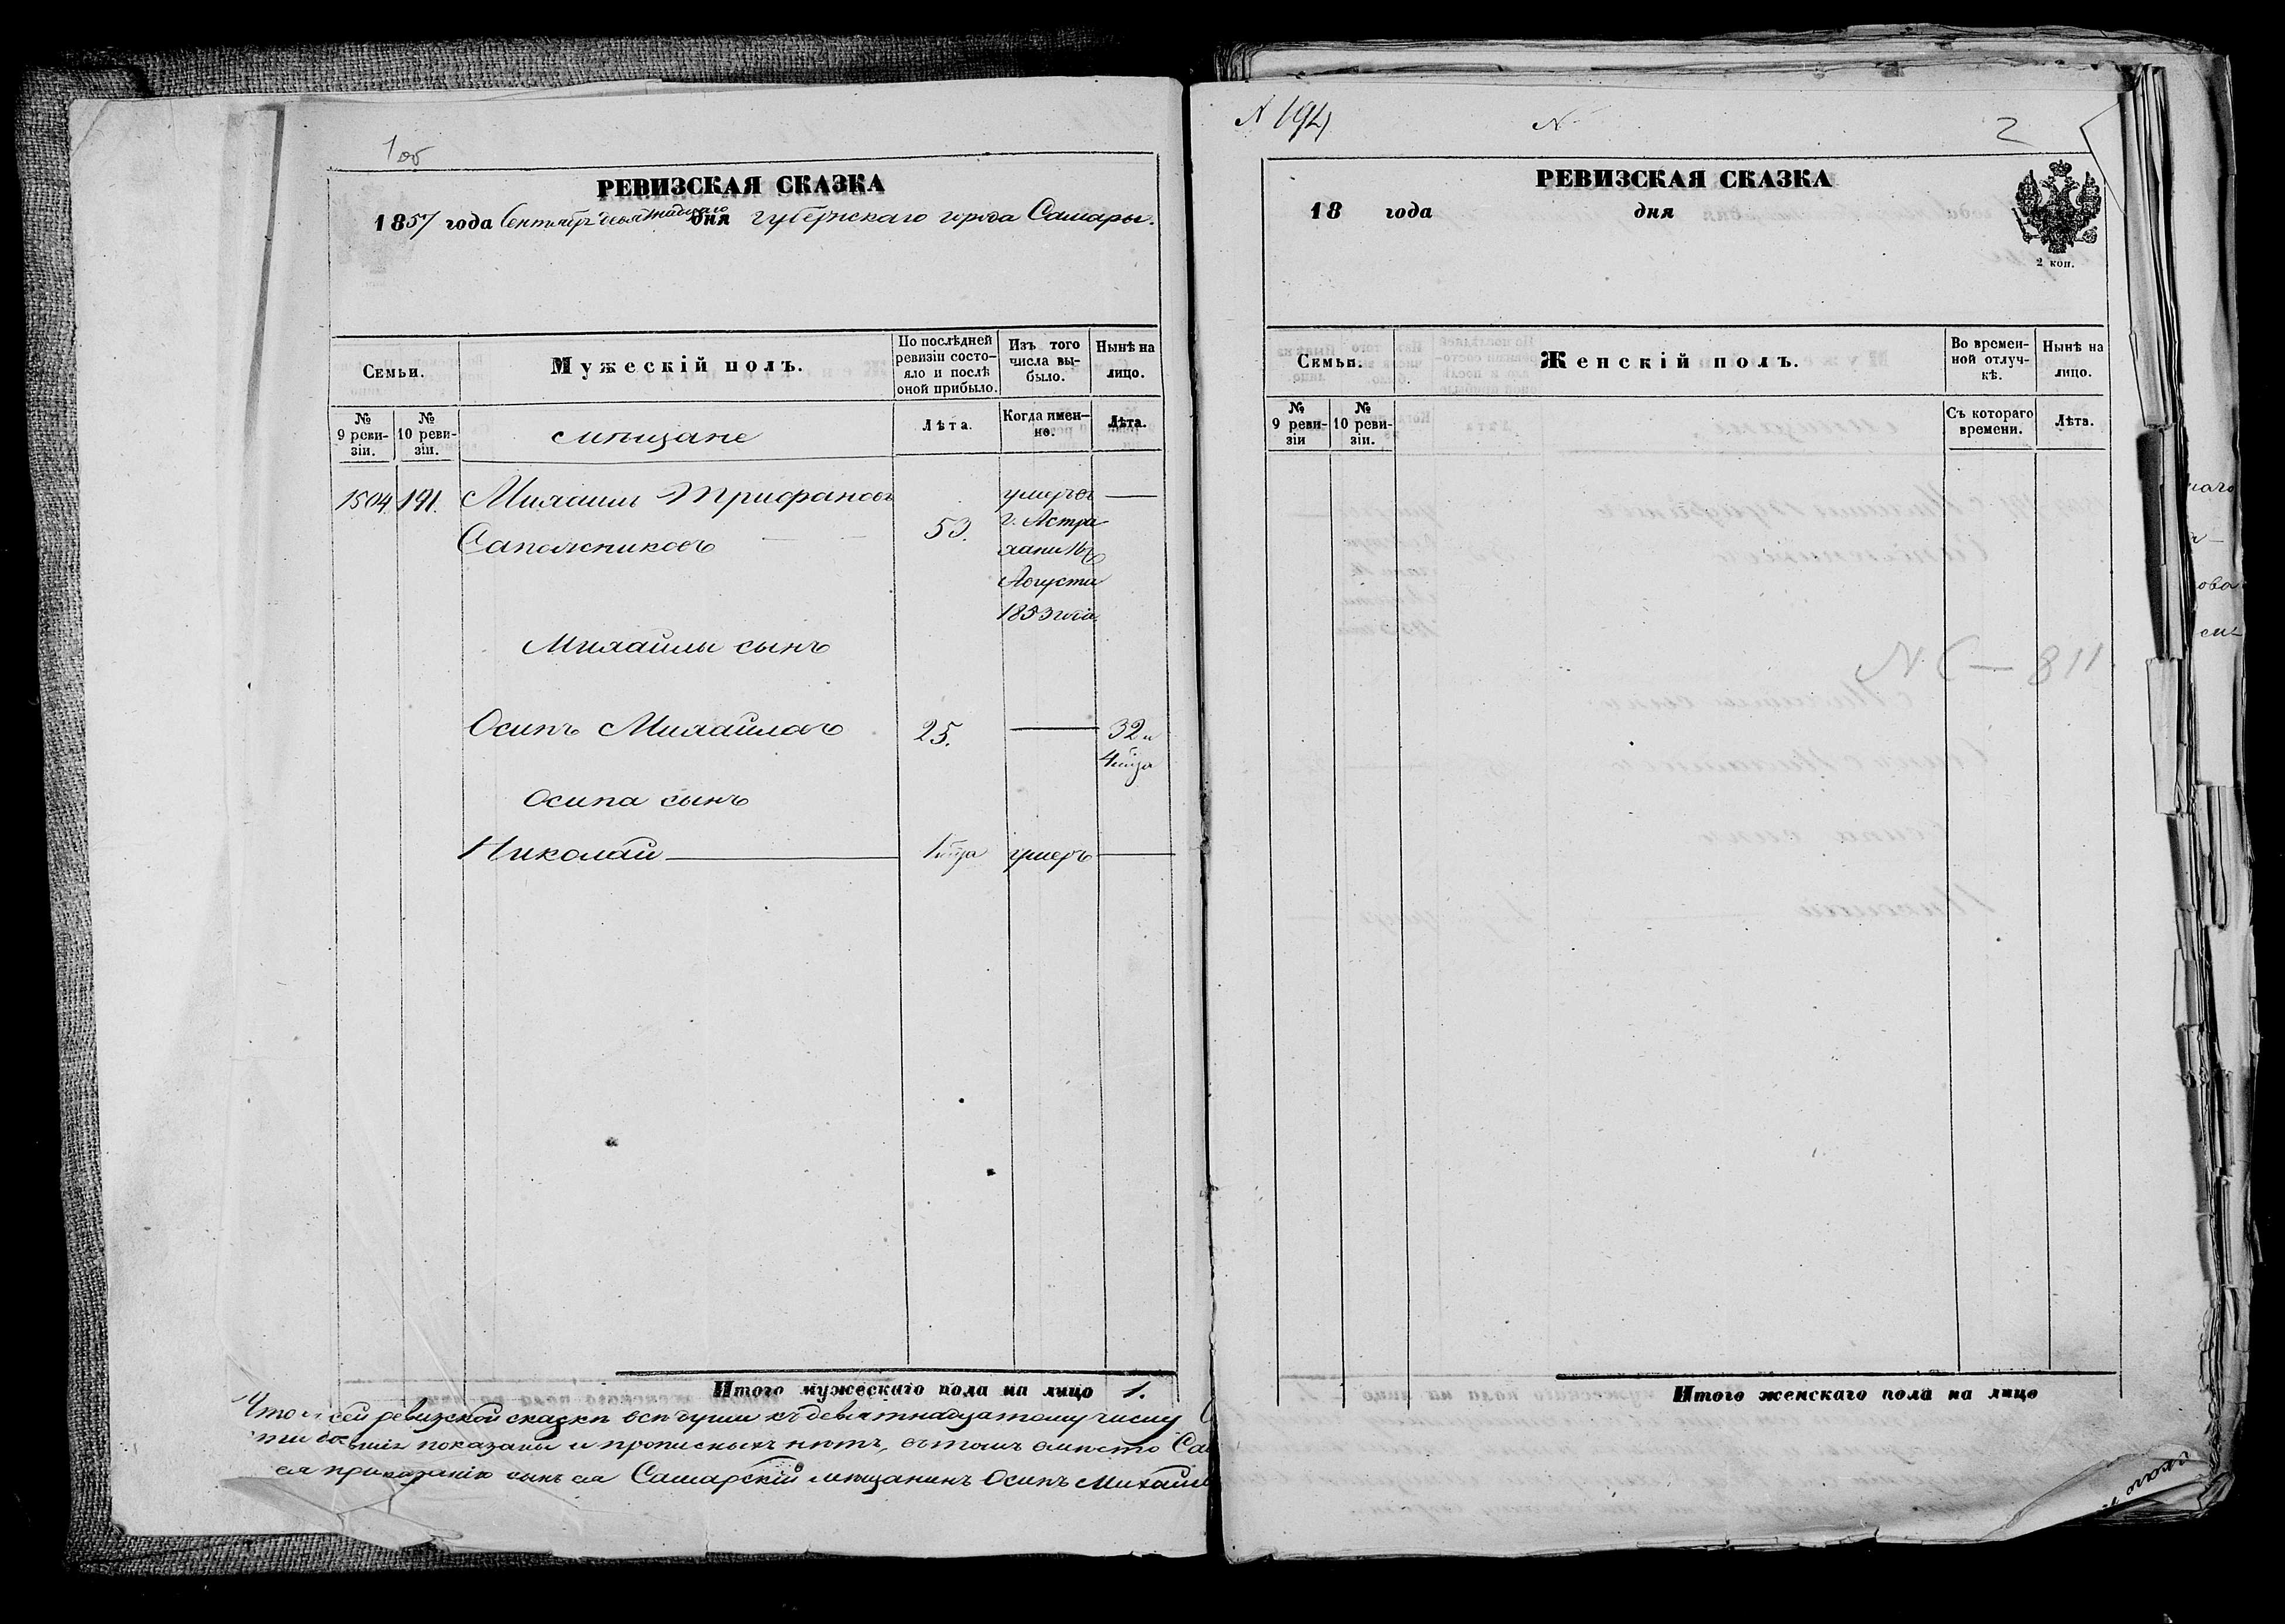 1об
РЕВИЗСКАЯ СКАЗКА
1857 года Сентября девятнадцатаго дня губернскаго города Самары.
Семьи.
Мужескій полъ.
По послѣдней ревизіи состо-
яло и послѣ
оной прибыло.
Изъ того
числа вы-
было.
Нынѣ на
лицо.
№
9 реви-
зіи.
№
10 реви-
зіи.
мѣщане
Лѣта.
Когда имен-
но.
Лѣта.
1504 191. Михаилъ Трифановъ
Сапожниковъ
53.
умеръ въ
г. Астра
хани 16го
Августа
1853 года
Михайлы сынъ
Осипъ Михайловъ 25. — 32 и
4 мѣца
Осипа сынъ
Николай — 1 мѣца умеръ —
Итого мужескаго пола на лицо 1.
Что въ сей ревизской сказкѣ всѣ души къ девятнадцатому числу
показаны и прописныхъ нѣтъ, въ томъ вмѣсто
ея приказанію сынъ ея Самарскій мѣщанинъ Осипъ Михайл
№ 194
№
2
РЕВИЗСКАЯ СКАЗКА
18 года дня
2 коп.
Семьи.
Женскій полъ.
Во времен-
ной отлуч-
кѣ.
Нынѣ на
лицо.
№
9 реви-
зіи
№
10 реви-
зіи.
Съ котораго
времени.
Лѣта.
N С — 811
Итого женскаго пола на лицо